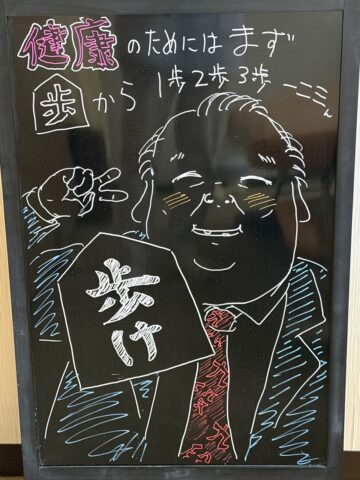 健康のためにはまず
歩から 1歩2歩3歩
歩け